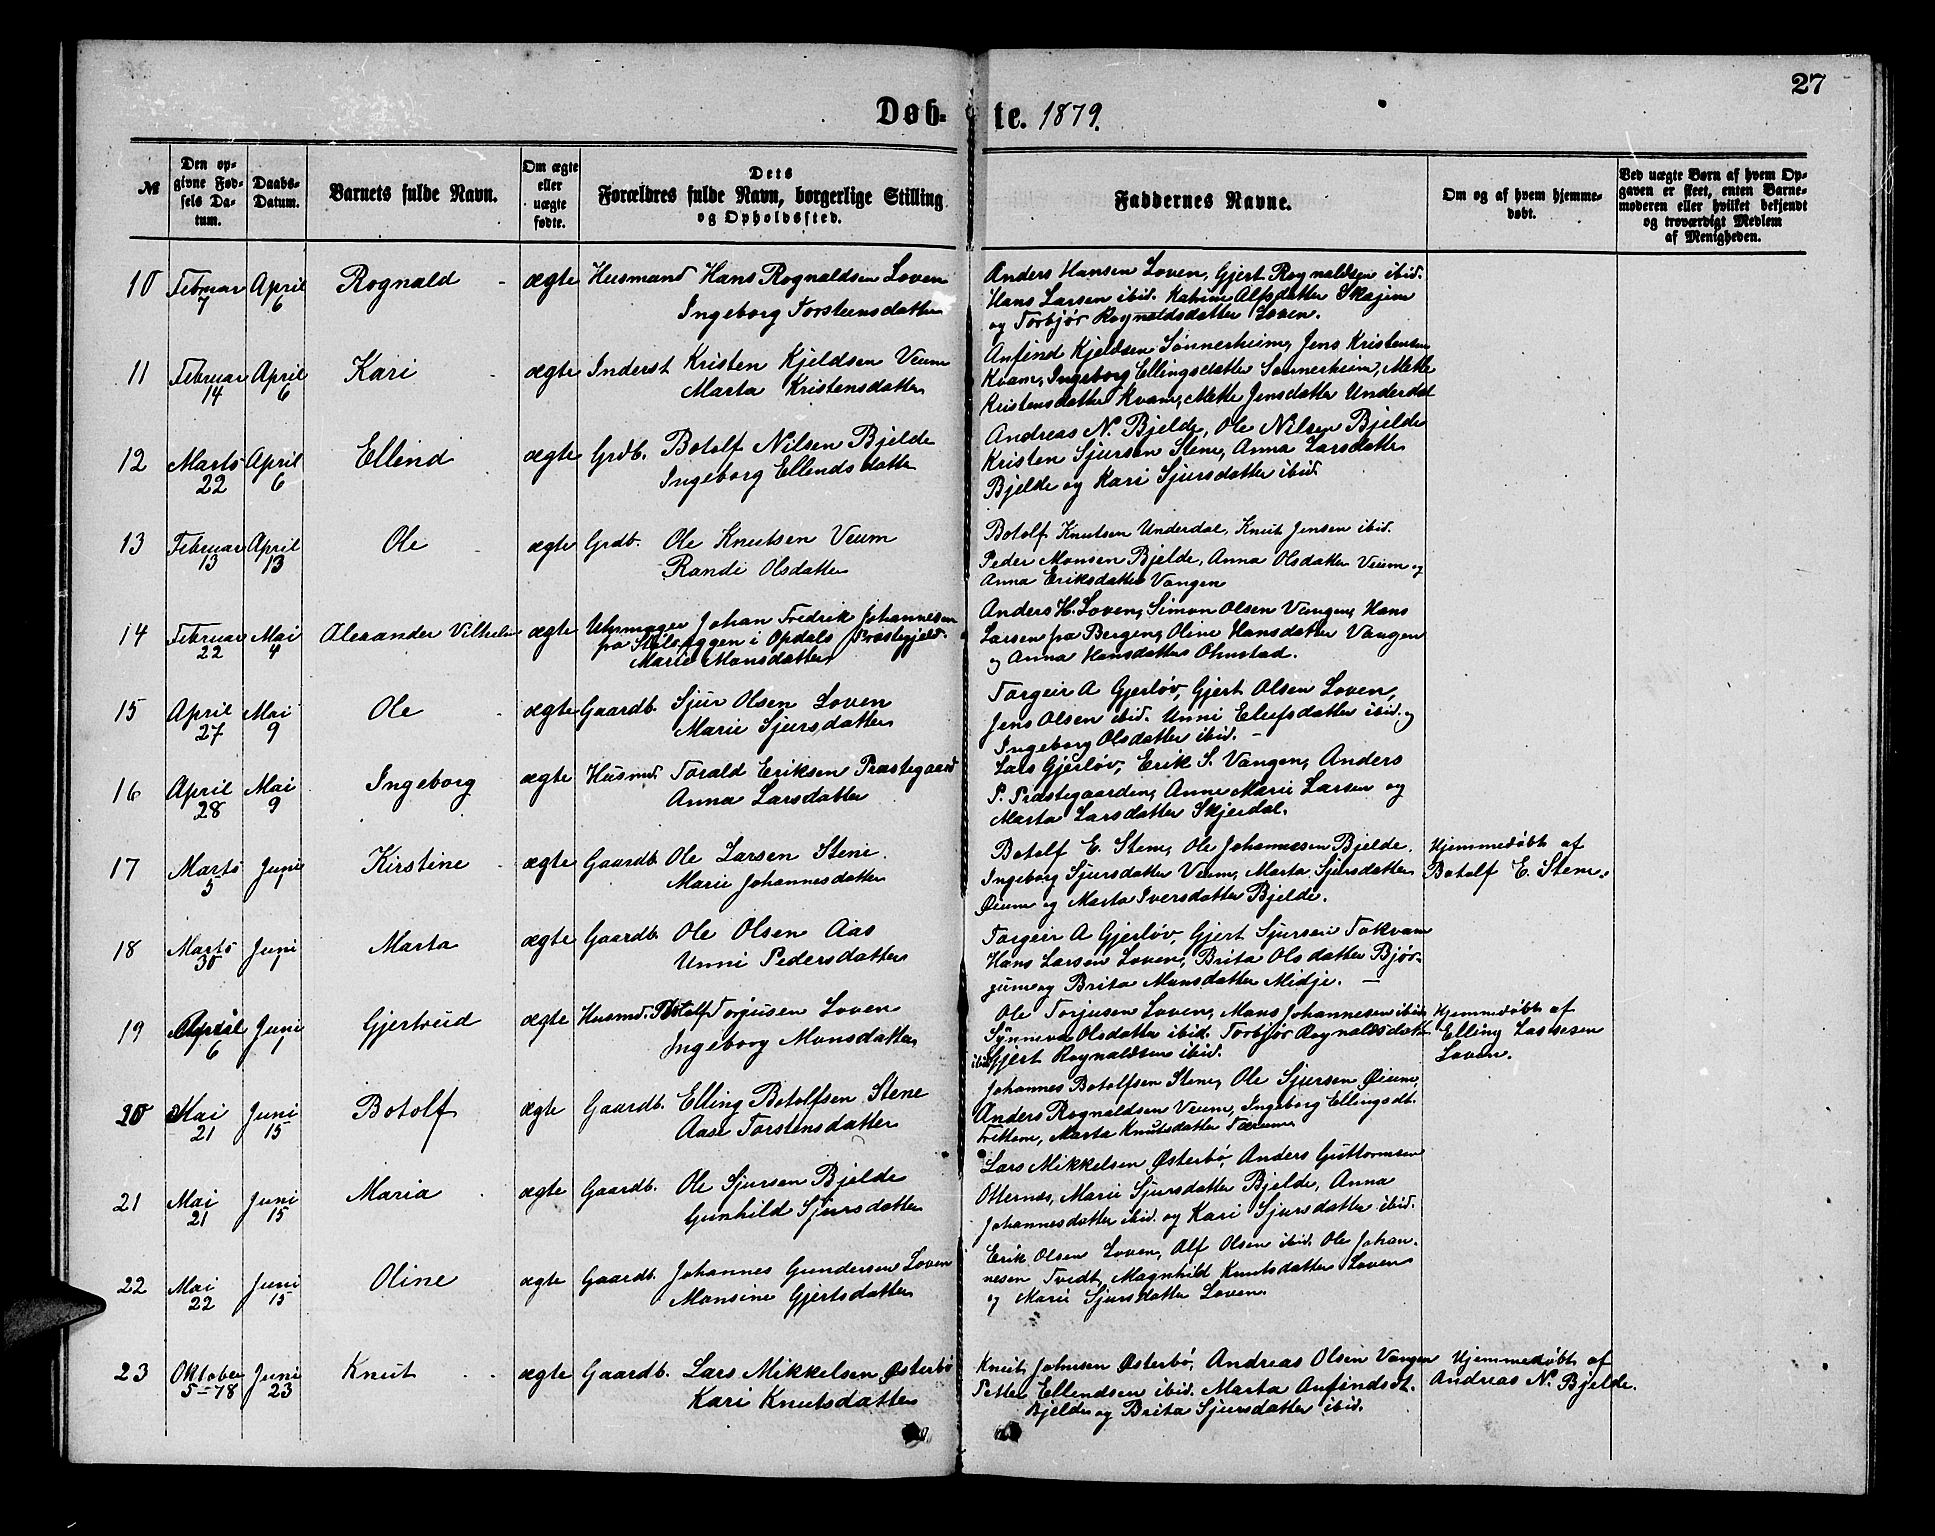 27
Døb- te. 1879.
№
Den op-
givne Fød-
sels Da-
tum.
Daabs-
Datum.
Barnets fulde Navn.
Om ægte
eller
uægte
født.
Dets
Forældres fulde Navn, borgerlige Stilling
og Opholdssted.
Faddernes Navne.
Om og af hvem hjemme-
døbt.
Ved uægte Børn af hvem Op-
gaven er skeet, enten Barne-
moderen eller hvilket bekjendt
og troværdigt Medlem
af Menigheden.
10 Februar 7 April 6 Rognald ægte Husmand Hans Rognaldsen Loven
Ingeborg Torsteensdatter
Anders Hansen Loven, Gjert Rognaldsen ibid.
Hans Larsen ibid. Katrine Alfsdatter Skajem
og Torbjør Rognaldsdatter Loven.
11 Februar 14 April 6 Kari ægte Inderst Kristen Kjeldsen Veum
Marta Kristensdatter
Anfind Kjeldsen Sønnerheim, Jens Kristensen
Kvam, Ingeborg Ellingsdatter Sønnerheim, Mette
Kristensdatter Kvam, Mette Jensdatter Underdal
12 Marts 22 April 6 Ellend ægte Grdb. Botolf Nilsen Bjelde
Ingeborg Ellendsdatter
Andreas N. Bjelde, Ole Nilsen Bjelde
Kristen Sjursen Stene, Anna Larsdatter
Bjelde og Kari Sjursdatter ibid.
13 Februar 13 April 13 Ole ægte Grdb. Ole Knutsen Veum
Randi Olsdatter
Botolf Knutsen Underdal, Knut Jensen ibid.
Peder Monsen Bjelde, Anna Olsdatter Veum og
Anna Eriksdatter Vangen
14 Februar 22 Mai 4 Alexander Vilhelm ægte Uhrmager Johan Fredrik Johannesen
på i Opdals Præstegjeld.
Marie Monsdatter
Anders H. Loven, Simon Olsen Vangen, Hans
Larsen på Bergen, Oline Hansdatter Vangen
og Anna Hansdatter Ohnstad.
15 April 27 Mai 9 Ole ægte Gaardb. Sjur Olsen Loven
Marie Sjursdatter
Torgeir A Gjerløv, Gjert Olsen Loven,
Jens Olsen ibid. Unni Elefsdatter ibid. og
Ingeborg Olsdatter ibid. —
16 April 28 Mai 9 Ingeborg ægte Husmd. Torald Eriksen Præstegaard
Anna Larsdatter
Lars Gjerløv, Erik S. Vangen, Anders
P. Præstegaarden, Anne Marie Larsen og
Marta Larsdatter Skjerdal.
17 Marts 5 Juni 1 Kirstine ægte Gaardb. Ole Larsen Stene.
Marie Johannesdatter
Botolf E. Stene, Ole Johannessen Bjelde.
Ingeborg Sjursdatter Veum, Marta Sjursdatter
Øeum og Marta Iversdatter Bjelde.
Hjemmedøbt af
Botolf E. Stene.
18 Marts 30 Juni 1 Marta ægte Gaardb. Ole Olsen Aas
Unni Pedersdatter
Torgeir A Gjerløv, Gjert Sjursen Tokvam
Hans Larsen Loven, Brita Olsdatter Bjør-
gum og Brita Monsdatter Midje. —
19 April 6 Juni 1 Gjertrud ægte Husmd. Botolf Torjusen Loven
Ingeborg Monsdatter
Ole Torjusen Loven, Mons Johannesen ibid.
Synneva Olsdatter ibid. Torbjør Rognaldsdatt.
ibid. Gjert Rognaldsen ibid.
Hjemmedøbt af
Elling Lassesen
Loven.
20 Mai 21 Juni 15 Botolf ægte Gaardb. Elling Botolfsen Stene
Aase Torstensdatter
Johannes Botolfsen Stene, Ole Sjursen Øeum,
Anders Rognaldsen Veum, Ingeborg Ellingsdt.
Frettem, Marta Knutsdatter
21 Mai 21 Juni 15 Maria ægte Gaardb. Ole Sjursen Bjelde
Gunhild Sjursdatter
Lars Mikkelsen Østerbø, Anders Guttormsen
Otternes, Marie Sjursdatter Bjelde, Anna
Johannesdatter ibid. og Kari Sjursdatter ibid.
22 Mai 22 Juni 15 Oline ægte Gaardb. Johannes Gundersen Loven
Monsine Gjertsdatter
Erik Olsen Loven, Alf Olsen ibid. Ole Johan-
nesen Tvedt, Magnhild Knutsdatter Loven
og Marie Sjursdatter Loven.
23 Oktober 5-78 Juni 23 Knut ægte Gaardb. Lars Mikkelsen Østerbø
Kari Knutsdatter
Knut Johnsen Østerbø, Andreas Olsen Vangen
Petter Ellendsen ibid. Marta Anfindsdt.
Bjelde og Brita Sjursdatter ibid.
Hjemmedøbt af
Andreas N. Bjelde.